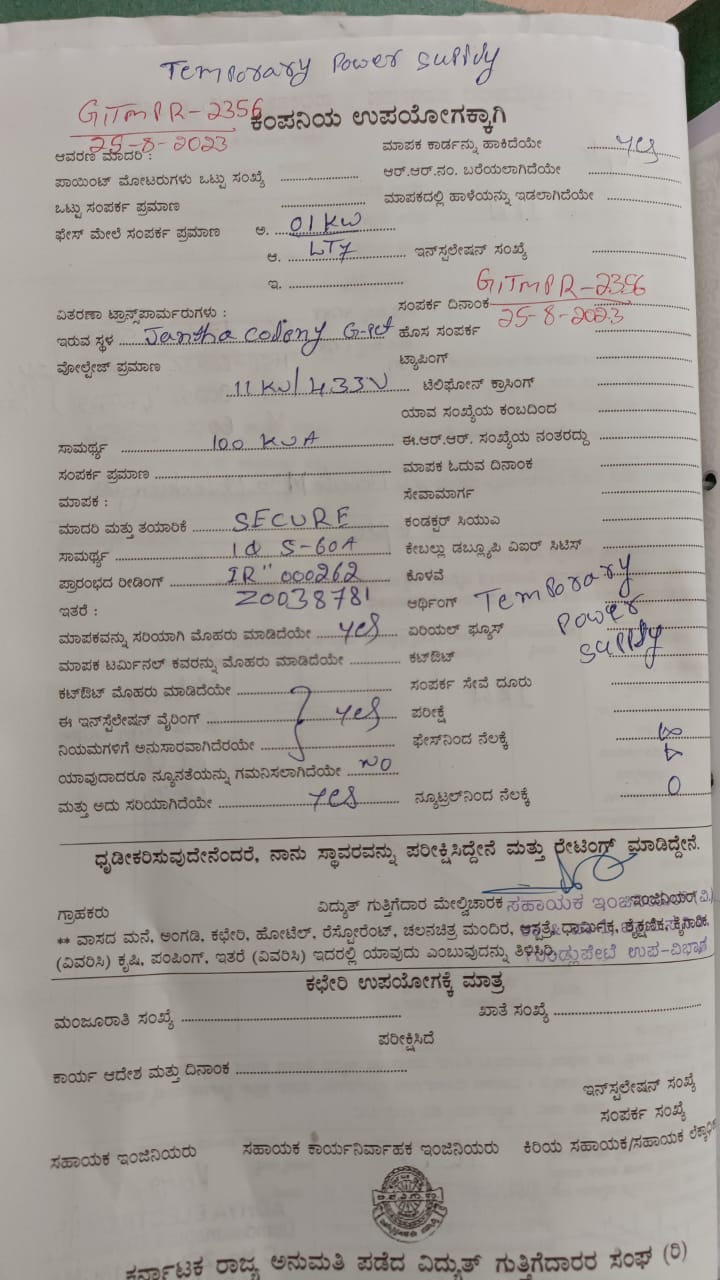 Temporary Power Supply
GITMPR-2356
25-8-2023
ಕಂಪನಿಯ ಉಪಯೋಗಕ್ಕಾಗಿ
ಆವರಣ ಮಾದರಿ :
ಮಾಪಕ ಕಾರ್ಡನ್ನು ಹಾಕಿದೆಯೇ yes
ಪಾಯಿಂಟ್ ಮೋಟರುಗಳು ಒಟ್ಟು ಸಂಖ್ಯೆ
ಆರ್.ಆರ್.ನಂ. ಬರೆಯಲಾಗಿದೆಯೇ
ಒಟ್ಟು ಸಂಪರ್ಕ ಪ್ರಮಾಣ
ಮಾಪಕದಲ್ಲಿ ಹಾಳೆಯನ್ನು ಇಡಲಾಗಿದೆಯೇ
ಫೇಸ್ ಮೇಲೆ ಸಂಪರ್ಕ ಪ್ರಮಾಣ ಅ. 01 KW
ಆ. LT7 ಇನ್‌ಸ್ಪಲೇಷನ್ ಸಂಖ್ಯೆ
ಇ.
ವಿತರಣಾ ಟ್ರಾನ್ಸ್‌ಪಾರ್ಮರುಗಳು :
ಸಂಪರ್ಕ ದಿನಾಂಕ GITMPR-2356
25-8-2023
ಇರುವ ಸ್ಥಳ Jantha Colony G-pet ಹೊಸ ಸಂಪರ್ಕ
ವೋಲ್ಟೇಜ್ ಪ್ರಮಾಣ ಟ್ಯಾಪಿಂಗ್
11 KV/433V ಟೆಲಿಫೋನ್ ಕ್ರಾಸಿಂಗ್
ಯಾವ ಸಂಖ್ಯೆಯ ಕಂಬದಿಂದ
ಸಾಮರ್ಥ್ಯ 100 KVA ಈ.ಆರ್.ಆರ್. ಸಂಖ್ಯೆಯ ನಂತರದ್ದು
ಸಂಪರ್ಕ ಪ್ರಮಾಣ ಮಾಪಕ ಓದುವ ದಿನಾಂಕ
ಮಾಪಕ : ಸೇವಾಮಾರ್ಗ
ಮಾದರಿ ಮತ್ತು ತಯಾರಿಕೆ SECURE ಕಂಡಕ್ಟರ್ ಸಿಯುಎ
ಸಾಮರ್ಥ್ಯ 1Φ 5-60A ಕೇಬಲ್ಲು ಡಬ್ಲ್ಯೂಪಿ ವಿಐರ್ ಸಿಟಿಸ್
ಪ್ರಾರಂಭದ ರೀಡಿಂಗ್ IR" 000262 ಕೊಳವೆ
ಇತರೆ : Z0038781 ಆರ್ಥಿಂಗ್ Temporary Power Supply
ಮಾಪಕವನ್ನು ಸರಿಯಾಗಿ ಮೊಹರು ಮಾಡಿದೆಯೇ yes ಏರಿಯಲ್ ಫ್ಯೂಸ್
ಮಾಪಕ ಟರ್ಮಿನಲ್ ಕವರನ್ನು ಮೊಹರು ಮಾಡಿದೆಯೇ ಕಟ್‌ಔಟ್
ಕಟ್‌ಔಟ್ ಮೊಹರು ಮಾಡಿದೆಯೇ ಸಂಪರ್ಕ ಸೇವೆ ದೂರು
ಈ ಇನ್‌ಸ್ಟಲೇಷನ್ ವೈರಿಂಗ್ yes ಪರೀಕ್ಷೆ
ನಿಯಮಗಳಿಗೆ ಅನುಸಾರವಾಗಿದೆರಯೇ ಫೇಸ್‌ನಿಂದ ನೆಲಕ್ಕೆ
ಯಾವುದಾದರೂ ನ್ಯೂನತೆಯನ್ನು ಗಮನಿಸಲಾಗಿದೆಯೇ NO
ಮತ್ತು ಅದು ಸರಿಯಾಗಿದೆಯೇ yes ನ್ಯೂಟ್ರಲ್‌ನಿಂದ ನೆಲಕ್ಕೆ 0
ಧೃಡೀಕರಿಸುವುದೇನೆಂದರೆ, ನಾನು ಸ್ಥಾವರವನ್ನು ಪರೀಕ್ಷಿಸಿದ್ದೇನೆ ಮತ್ತು ರೇಟಿಂಗ್ ಮಾಡಿದ್ದೇನೆ.
ಗ್ರಾಹಕರು ವಿದ್ಯುತ್ ಗುತ್ತಿಗೆದಾರ ಮೇಲ್ವಿಚಾರಕ ಸಹಾಯಕ ಇಂಜಿನಿಯರ್ (ವಿ.)
** ವಾಸದ ಮನೆ, ಅಂಗಡಿ, ಕಛೇರಿ, ಹೋಟೆಲ್, ರೆಸ್ಟೋರೆಂಟ್, ಚಲನಚಿತ್ರ ಮಂದಿರ, ಆಸ್ಪತ್ರೆ, ಧಾರ್ಮಿಕ, ಶೈಕ್ಷಣಿಕ, ಕೈಗಾರಿಕ,
(ವಿವರಿಸಿ) ಕೃಷಿ, ಪಂಪಿಂಗ್, ಇತರೆ (ವಿವರಿಸಿ) ಇದರಲ್ಲಿ ಯಾವುದು ಎಂಬುವುದನ್ನು ತಿಳಿಸಿರಿ. ಗುಂಡ್ಲುಪೇಟೆ ಉಪ-ವಿಭಾಗ
ಕಛೇರಿ ಉಪಯೋಗಕ್ಕೆ ಮಾತ್ರ
ಮಂಜೂರಾತಿ ಸಂಖ್ಯೆ ಖಾತೆ ಸಂಖ್ಯೆ
ಪರೀಕ್ಷಿಸಿದೆ
ಕಾರ್ಯ ಆದೇಶ ಮತ್ತು ದಿನಾಂಕ
ಇನ್‌ಸ್ಪಲೇಷನ್ ಸಂಖ್ಯೆ
ಸಂಪರ್ಕ ಸಂಖ್ಯೆ
ಸಹಾಯಕ ಇಂಜಿನಿಯರು ಸಹಾಯಕ ಕಾರ್ಯನಿರ್ವಾಹಕ ಇಂಜಿನಿಯರು ಕಿರಿಯ ಸಹಾಯಕ/ಸಹಾಯಕ
ಕರ್ನಾಟಕ ರಾಜ್ಯ ಅನುಮತಿ ಪಡೆದ ವಿದ್ಯುತ್ ಗುತ್ತಿಗೆದಾರರ ಸಂಘ (ರಿ)